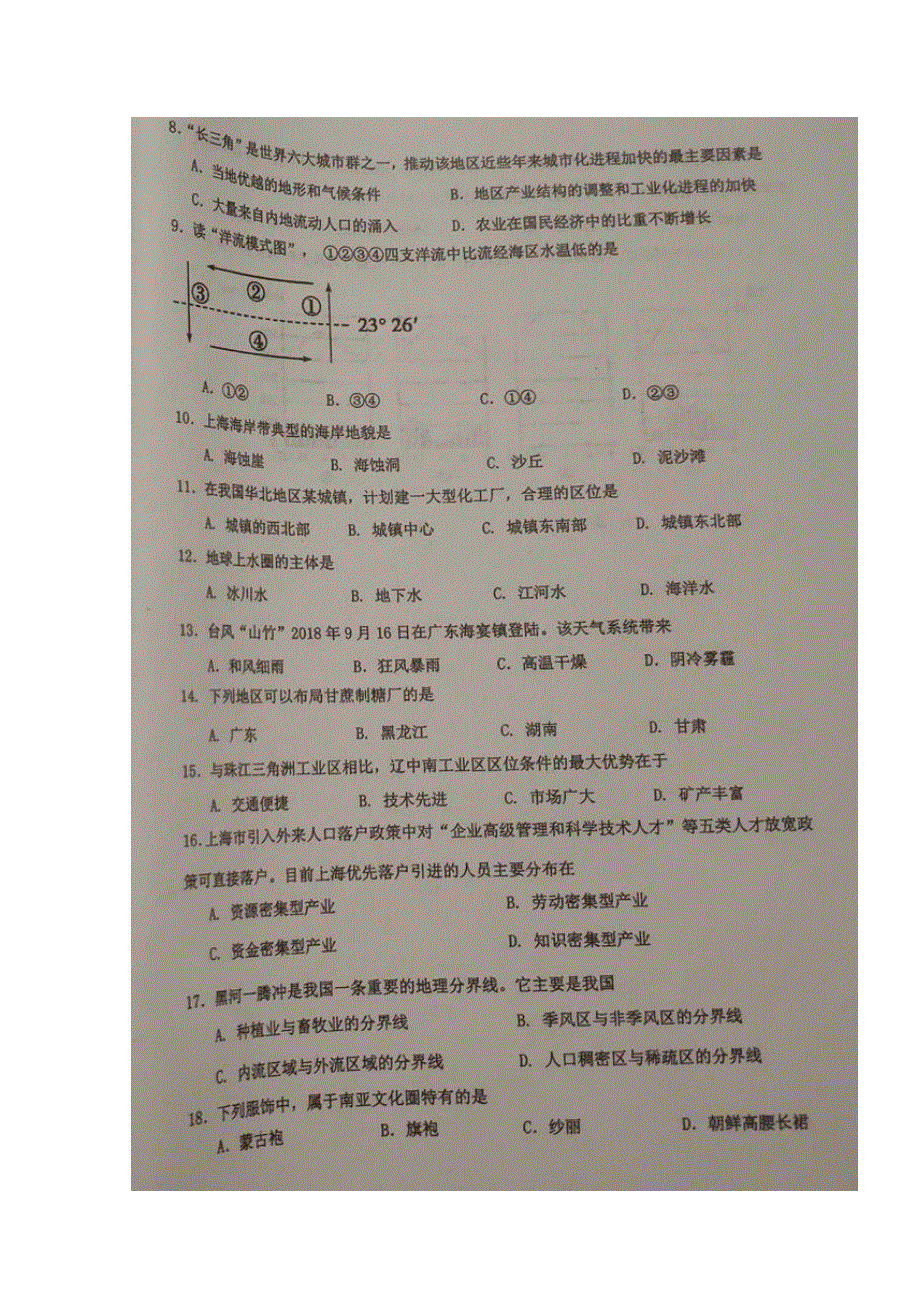 8. “长三角”是世界六大城市群之一，推动该地区近些年来城市化进程加快的最主要因素是
A. 当地优越的地形和气候条件 B. 地区产业结构的调整和工业化进程的加快
C. 大量来自内地流动人口的涌入 D. 农业在国民经济中的比重不断增长
9. 读“洋流模式图”， ①②③④四支洋流中比流经海区水温低的是
③ ② ①
23° 26′
④
A. ①② B. ③④ C. ①④ D. ②③
10. 上海海岸带典型的海岸地貌是
A. 海蚀崖 B. 海蚀洞 C. 沙丘 D. 泥沙滩
11. 在我国华北地区某城镇，计划建一大型化工厂，合理的区位是
A. 城镇的西北部 B. 城镇中心 C. 城镇东南部 D. 城镇东北部
12. 地球上水圈的主体是
A. 冰川水 B. 地下水 C. 江河水 D. 海洋水
13. 台风“山竹”2018 年 9 月 16 日在广东海宴镇登陆。该天气系统带来
A. 和风细雨 B. 狂风暴雨 C. 高温干燥 D. 阴冷雾霾
14. 下列地区可以布局甘蔗制糖厂的是
A. 广东 B. 黑龙江 C. 湖南 D. 甘肃
15. 与珠江三角洲工业区相比，辽中南工业区区位条件的最大优势在于
A. 交通便捷 B. 技术先进 C. 市场广大 D. 矿产丰富
16. 上海市引入外来人口落户政策中对“企业高级管理和科学技术人才”等五类人才放宽政
策可直接落户。目前上海优先落户引进的人员主要分布在
A. 资源密集型产业 B. 劳动密集型产业
C. 资金密集型产业 D. 知识密集型产业
17. 黑河一腾冲是我国一条重要的地理分界线。它主要是我国
A. 种植业与畜牧业的分界线 B. 季风区与非季风区的分界线
C. 内流区域与外流区域的分界线 D. 人口稠密区与稀疏区的分界线
18. 下列服饰中，属于南亚文化圈特有的是
A. 蒙古袍 B. 旗袍 C. 纱丽 D. 朝鲜高腰长裙